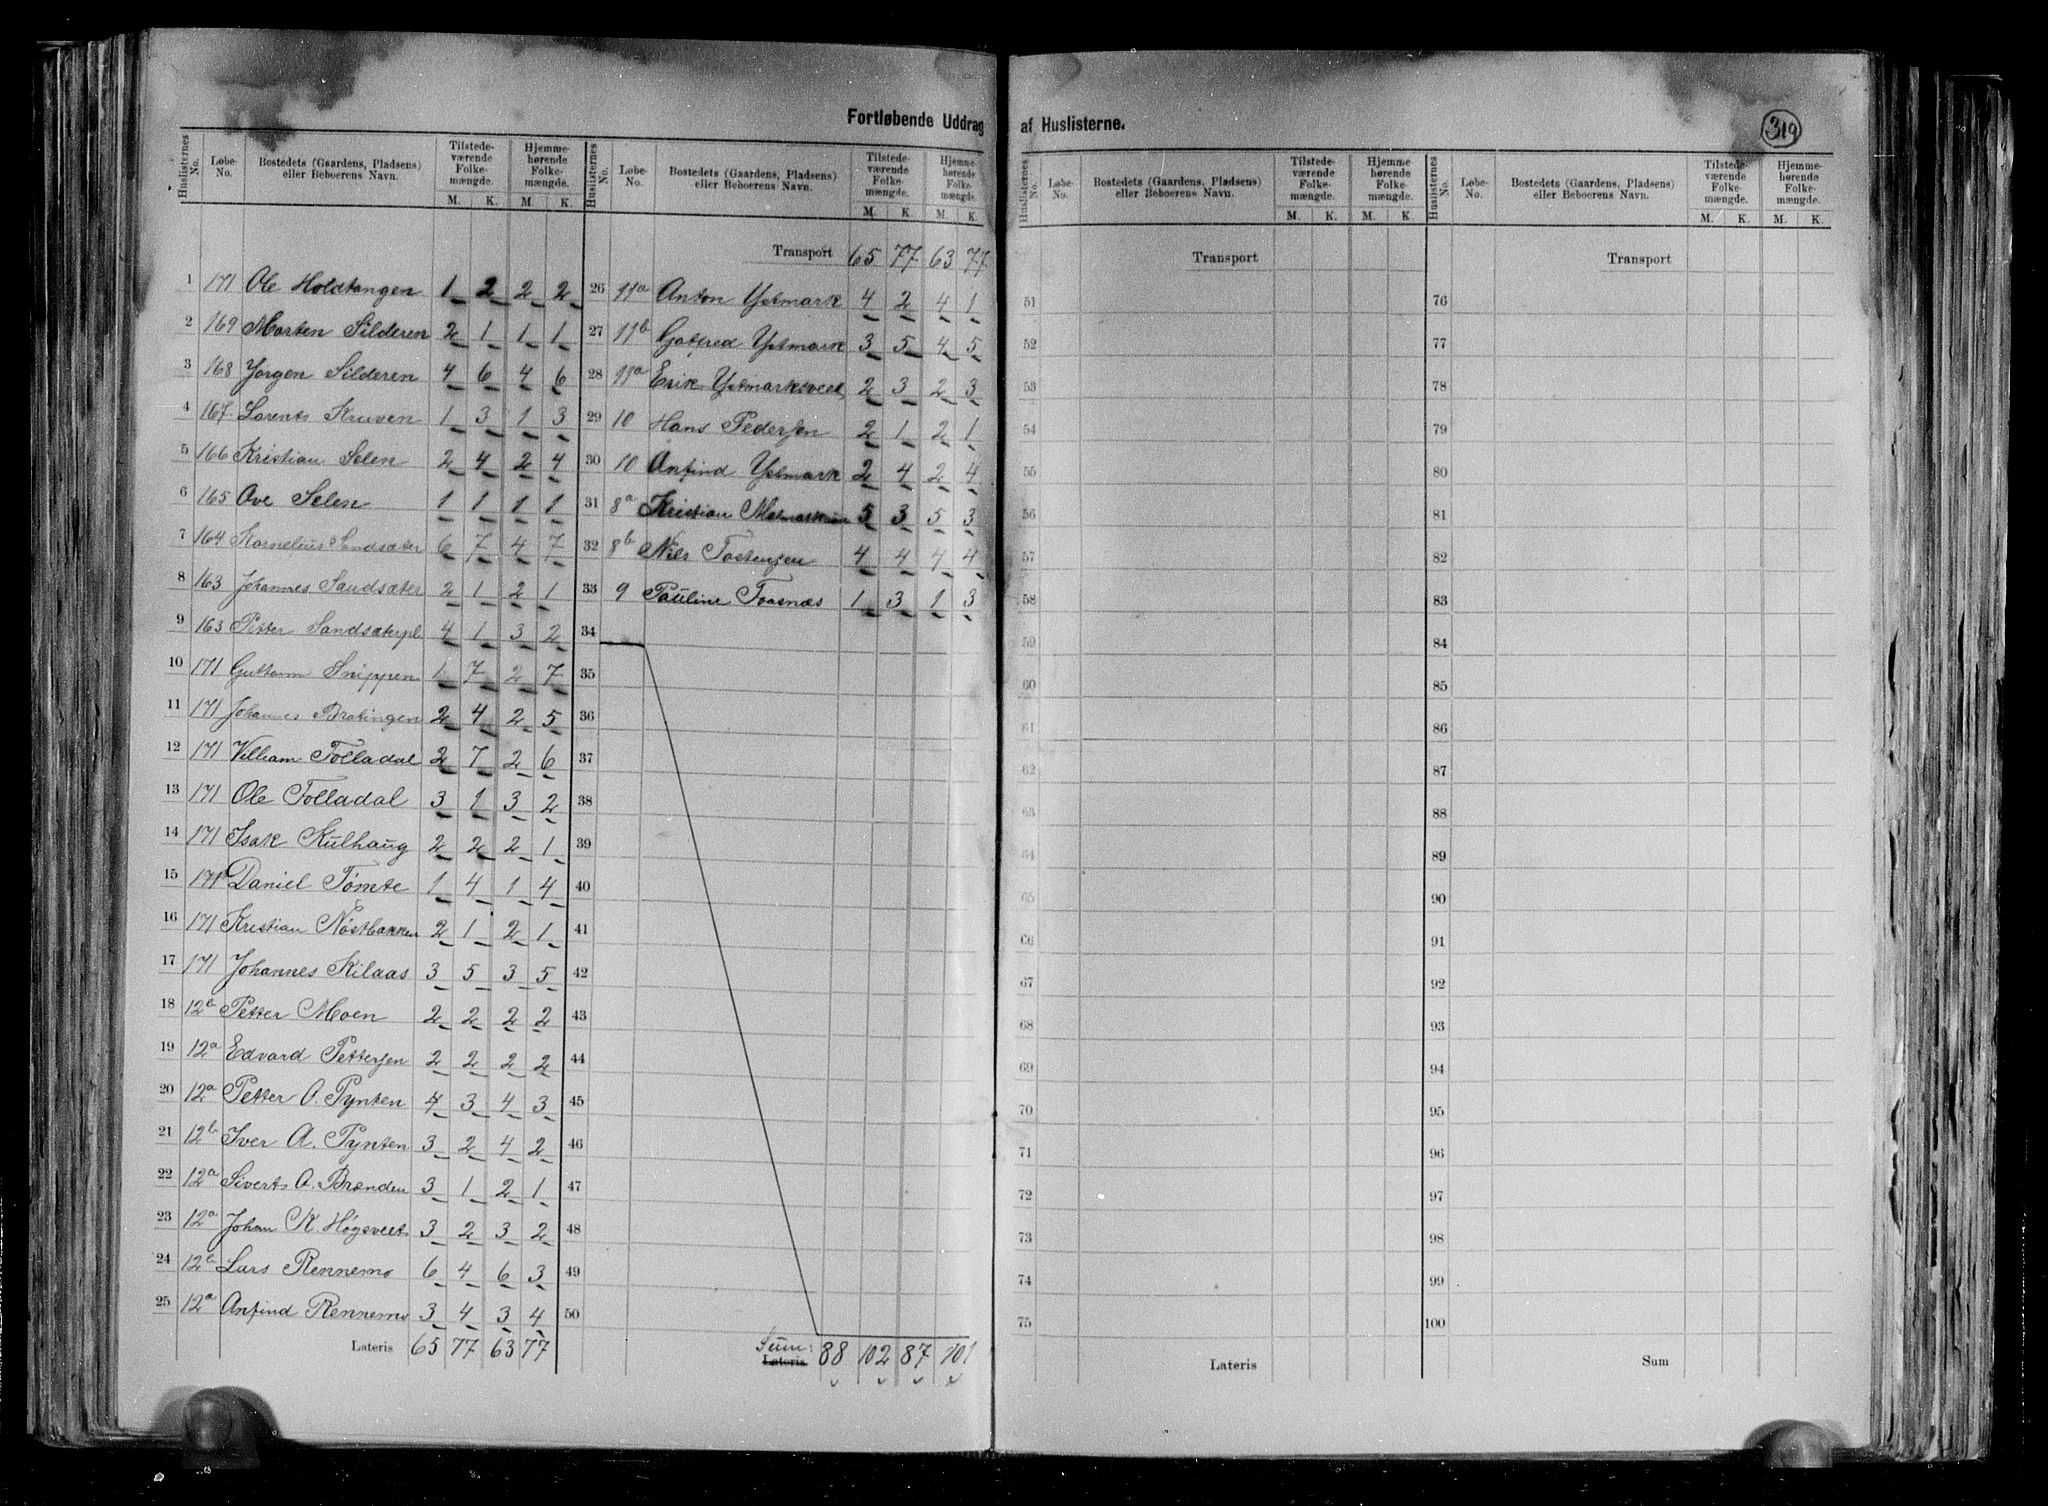 Fortløbende Uddrag af Huslisterne.
319
Huslisternes No. Løbe-No. Bostedets (Gaardens, Pladsens) eller Beboerens Navn. Tilstede-værende Folke-mængde. M. K. Hjemme-hørende Folke-mængde. M. K.
1 171 Ole Holdtangen 1 2 2 2
2 169 Morten Silderen 2 1 1 1
3 168 Jørgen Silderen 4 6 4 6
4 167 Lorents Kruven 1 3 1 3
5 166 Kristian Selen 2 4 2 4
6 165 Ove Selen 1 1 1 1
7 164 Kornelius Sandsæter 6 7 4 7
8 163 Johannes Sandsæter 2 1 2 1
9 163 Petter Sandsæterpl 4 1 3 2
10 171 Guttorm Snippen 1 7 2 7
11 171 Johannes Bratingen 2 4 2 5
12 171 Villiam Tølladal 2 7 2 6
13 171 Ole Tølladal 3 1 3 2
14 171 Isak Kulhaug 2 2 2 1
15 171 Daniel Tømte 1 4 1 4
16 171 Kristian Nøstbakken 2 1 2 1
17 171 Johannes Kilaas 3 5 3 5
18 12b Petter Moen 2 2 2 2
19 12a Edvard Pettersen 2 2 2 2
20 12a Petter O. Pynten 4 3 4 3
21 12b Iver A. Pynten 3 2 4 2
22 12a Siverts A. Brænden 3 1 2 1
23 12a Johan K. Høgsveet 3 2 3 2
24 12b Lars Rennemo 6 4 6 3
25 12a Anfind Rennemo 3 4 3 4
Lateris 65 77 63 77
Huslisternes No. Løbe-No. Bostedets (Gaardens, Pladsens) eller Beboerens Navn. Tilstede-værende Folke-mængde. M. K. Hjemme-hørende Folke-mængde. M. K.
Transport 65 77 63 77
26 11a Anton Ystmark 4 2 4 1
27 11b Gotfred Ystmark 3 5 4 5
28 11a Erik Ystmarksveet 2 3 2 3
29 10 Hans Pedersen 2 1 2 1
30 10 Anfind Ystmark 2 4 2 4
31 8a Kristian 5 3 5 3
32 8b Nils Tostensen 4 4 4 4
33 9 Pauline Toasnæs 1 3 1 3
34
35
36
37
38
39
40
41
42
43
44
45
46
47
48
49
50
Sum: Lateris 88 102 87 101
Huslisternes No. Løbe-No. Bostedets (Gaardens, Pladsens) eller Beboerens Navn. Tilstede-værende Folke-mængde. M. K. Hjemme-hørende Folke-mængde. M. K.
Transport
51
52
53
54
55
56
57
58
59
60
61
62
63
64
65
66
67
68
69
70
71
72
73
74
75
Lateris
Huslisternes No. Løbe-No. Bostedets (Gaardens, Pladsens) eller Beboerens Navn. Tilstede-værende Folke-mængde. M. K. Hjemme-hørende Folke-mængde. M. K.
Transport
76
77
78
79
80
81
82
83
84
85
86
87
88
89
90
91
92
93
94
95
96
97
98
99
100
Sum